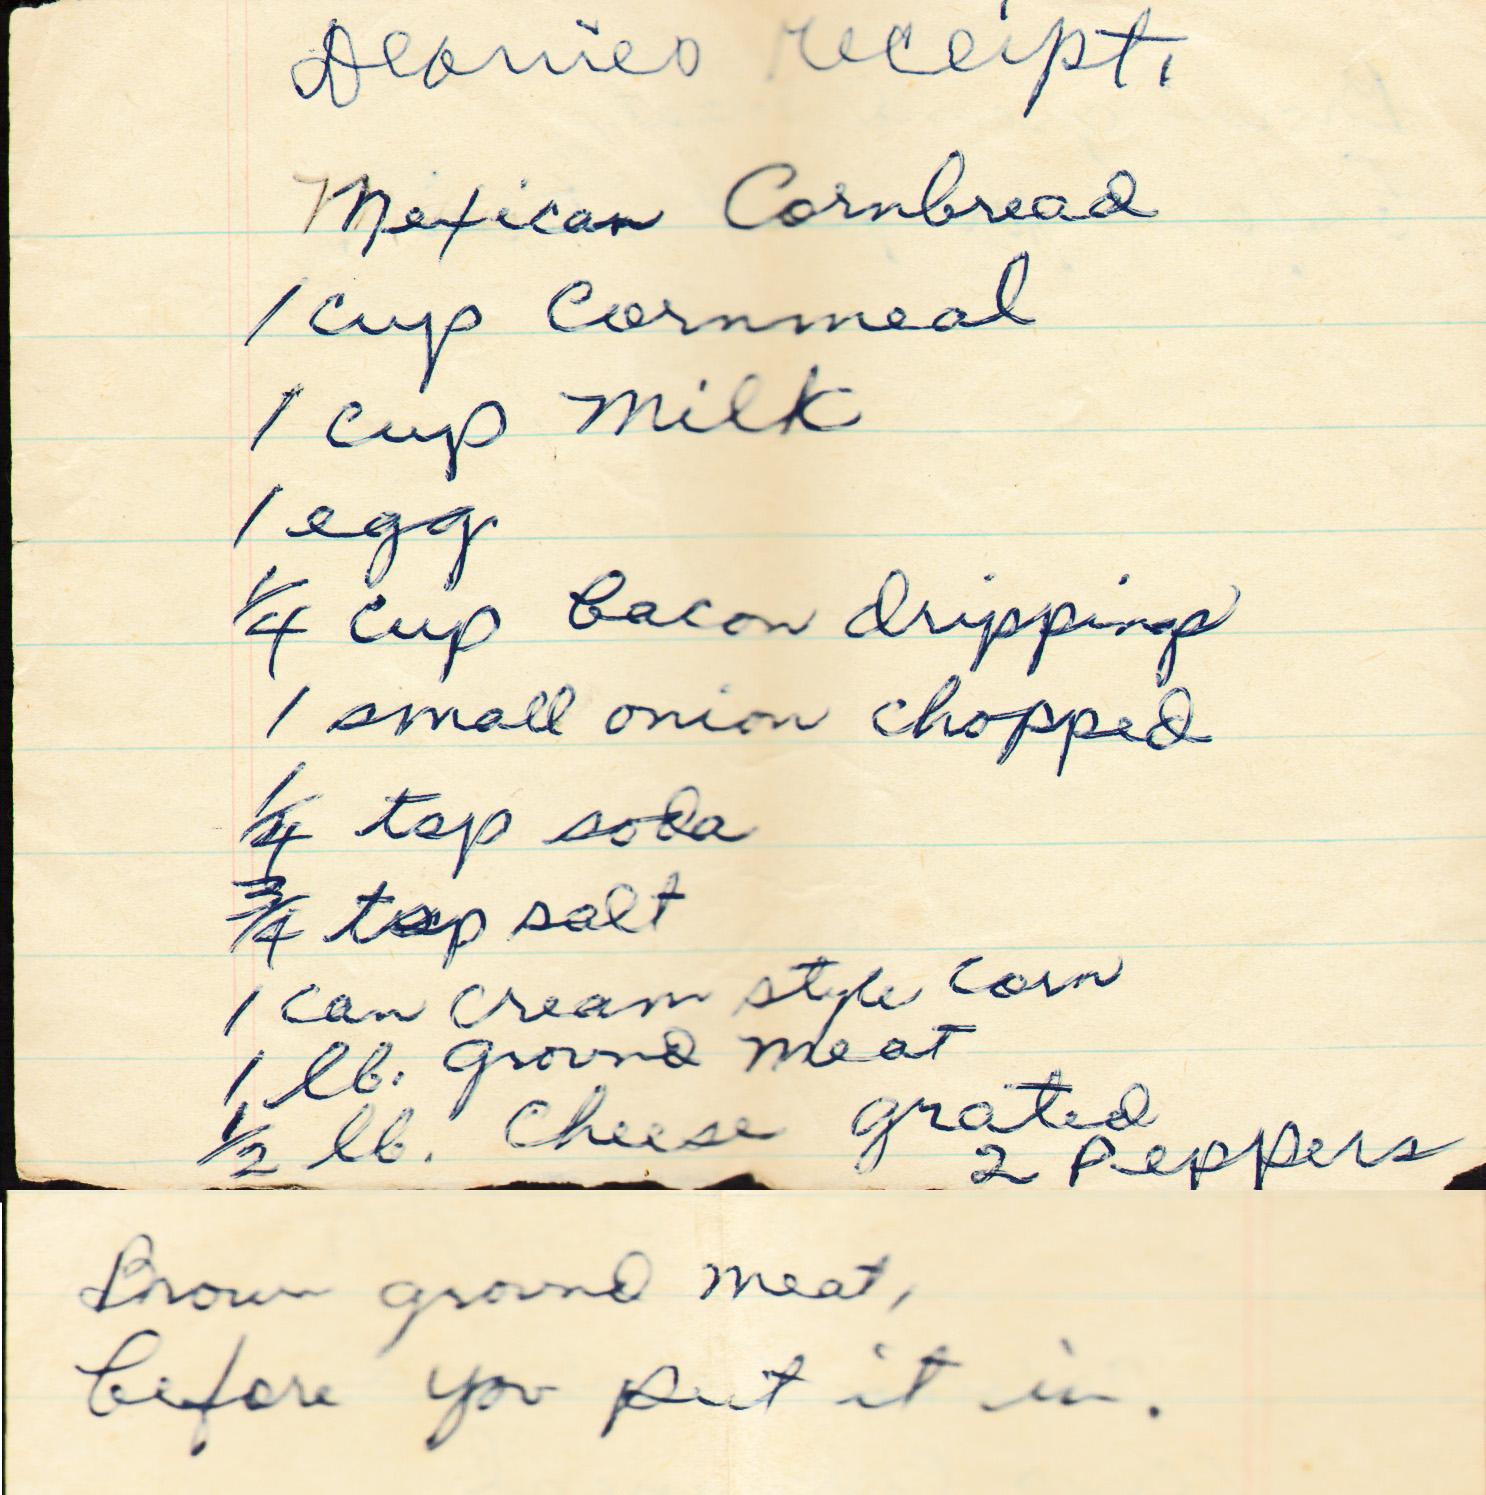 receipt,
Mexican Cornbread
1 cup Cornmeal
1 cup milk
1 egg
1/4 cup bacon drippings
1 small onion chopped
1/4 tsp soda
3/4 tsp salt
1 can cream style corn
1 lb. ground meat
1/2 lb. Cheese grated
2 Peppers
Brown ground meat,
before you put it in.